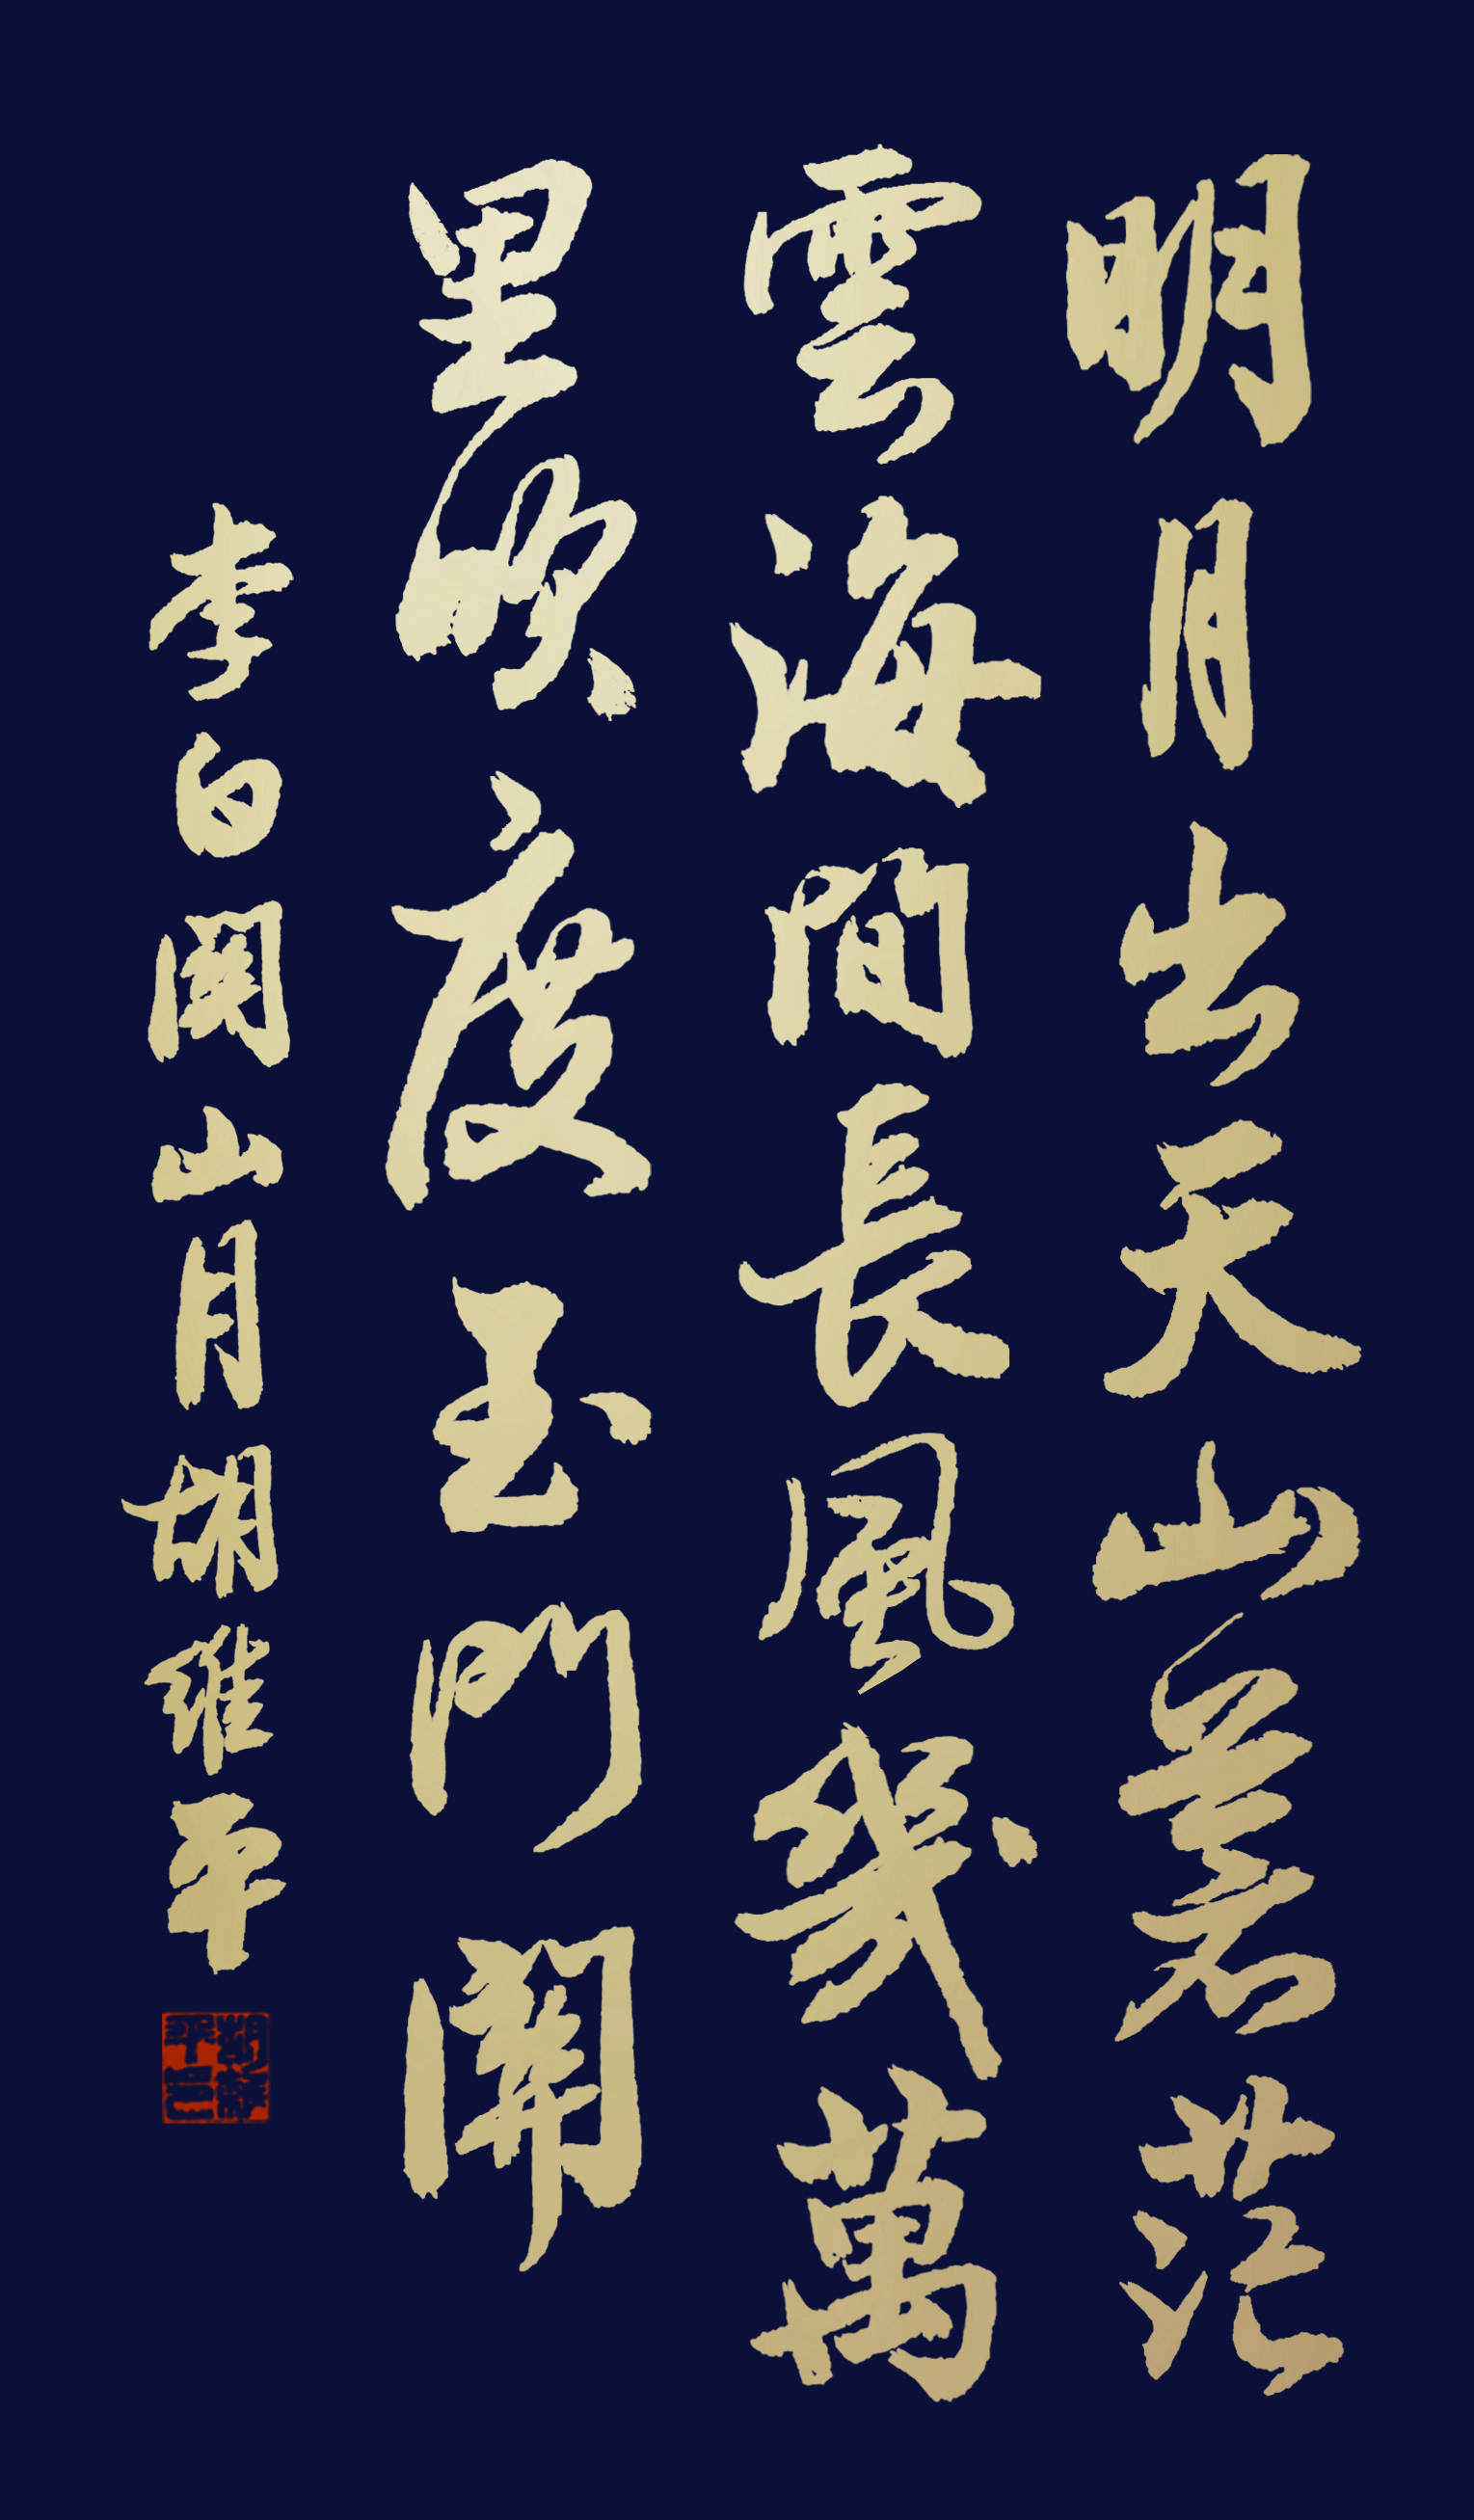 明月出天山蒼茫
雲海間長風幾萬
里吹度玉門關
李白關山月胡維平